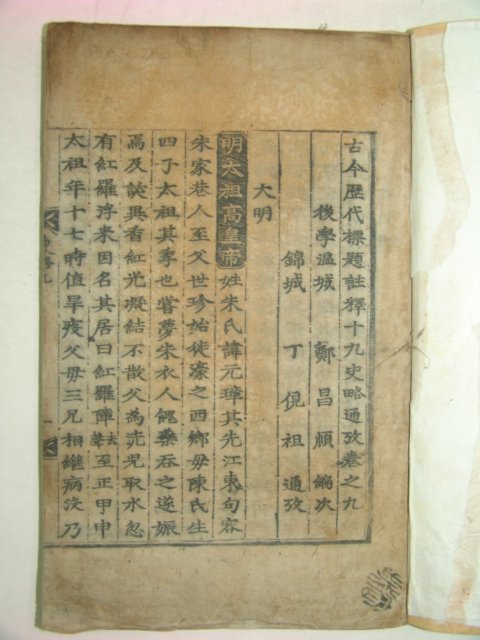 古今歷代標題註釋十九史略通攷卷之九
後學溫城 鄭昌順 編次
錦城 丁俔祖 通攷
大明
明太祖高皇帝姓朱氏諱元璋其先江東句容
朱家巷人至父世珍始徙濠之西鄉毋陳氏生
四子太祖其季也嘗夢朱衣人餽藥吞之遂娠
焉及誕異香紅光凝結不散父為洗児取水忽
有紅羅浮来因名其居曰紅羅障 至正甲申
太祖年十七時值旱疫父毋三兄相繼病沒乃